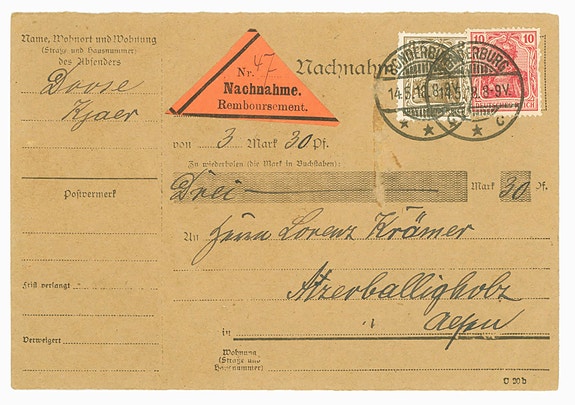 Name, Wohnort und Wohnung
(Straße und Hausnummer)
des Absenders
Doose
Kjaer
Postvermerk
Frist verlangt
Verweigert
Nr. 47
Nachnahme.
Remboursement.
Nachnahm
SONDERBURG
14.5.18. 8-9V.
C
10 10
DEUTSCHES REICH
von 3 Mark 30 Pf.
Zu wiederholen (die Mark in Buchstaben):
Drei Mark 30 Pf.
An Herrn Lorenz Krämer
Atzerballigholz
in
Wohnung
(Straße und
Hausnummer)
D 20 b